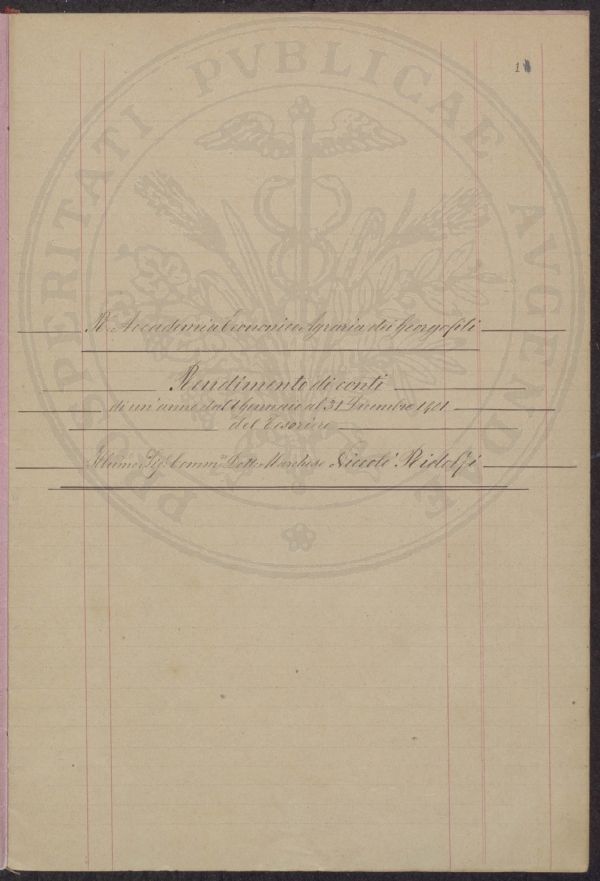 1
PROSPERITATI PVBLICAE AVGENDAE
R. Accademia Economico Agraria dei Georgofili
Rendimento di conti
di un'anno dal 1 Gennaio al 31 Dicembre 1901
del Tesoriere
Sig. Comm. Dott. Marchese Niccolò Ridolfi